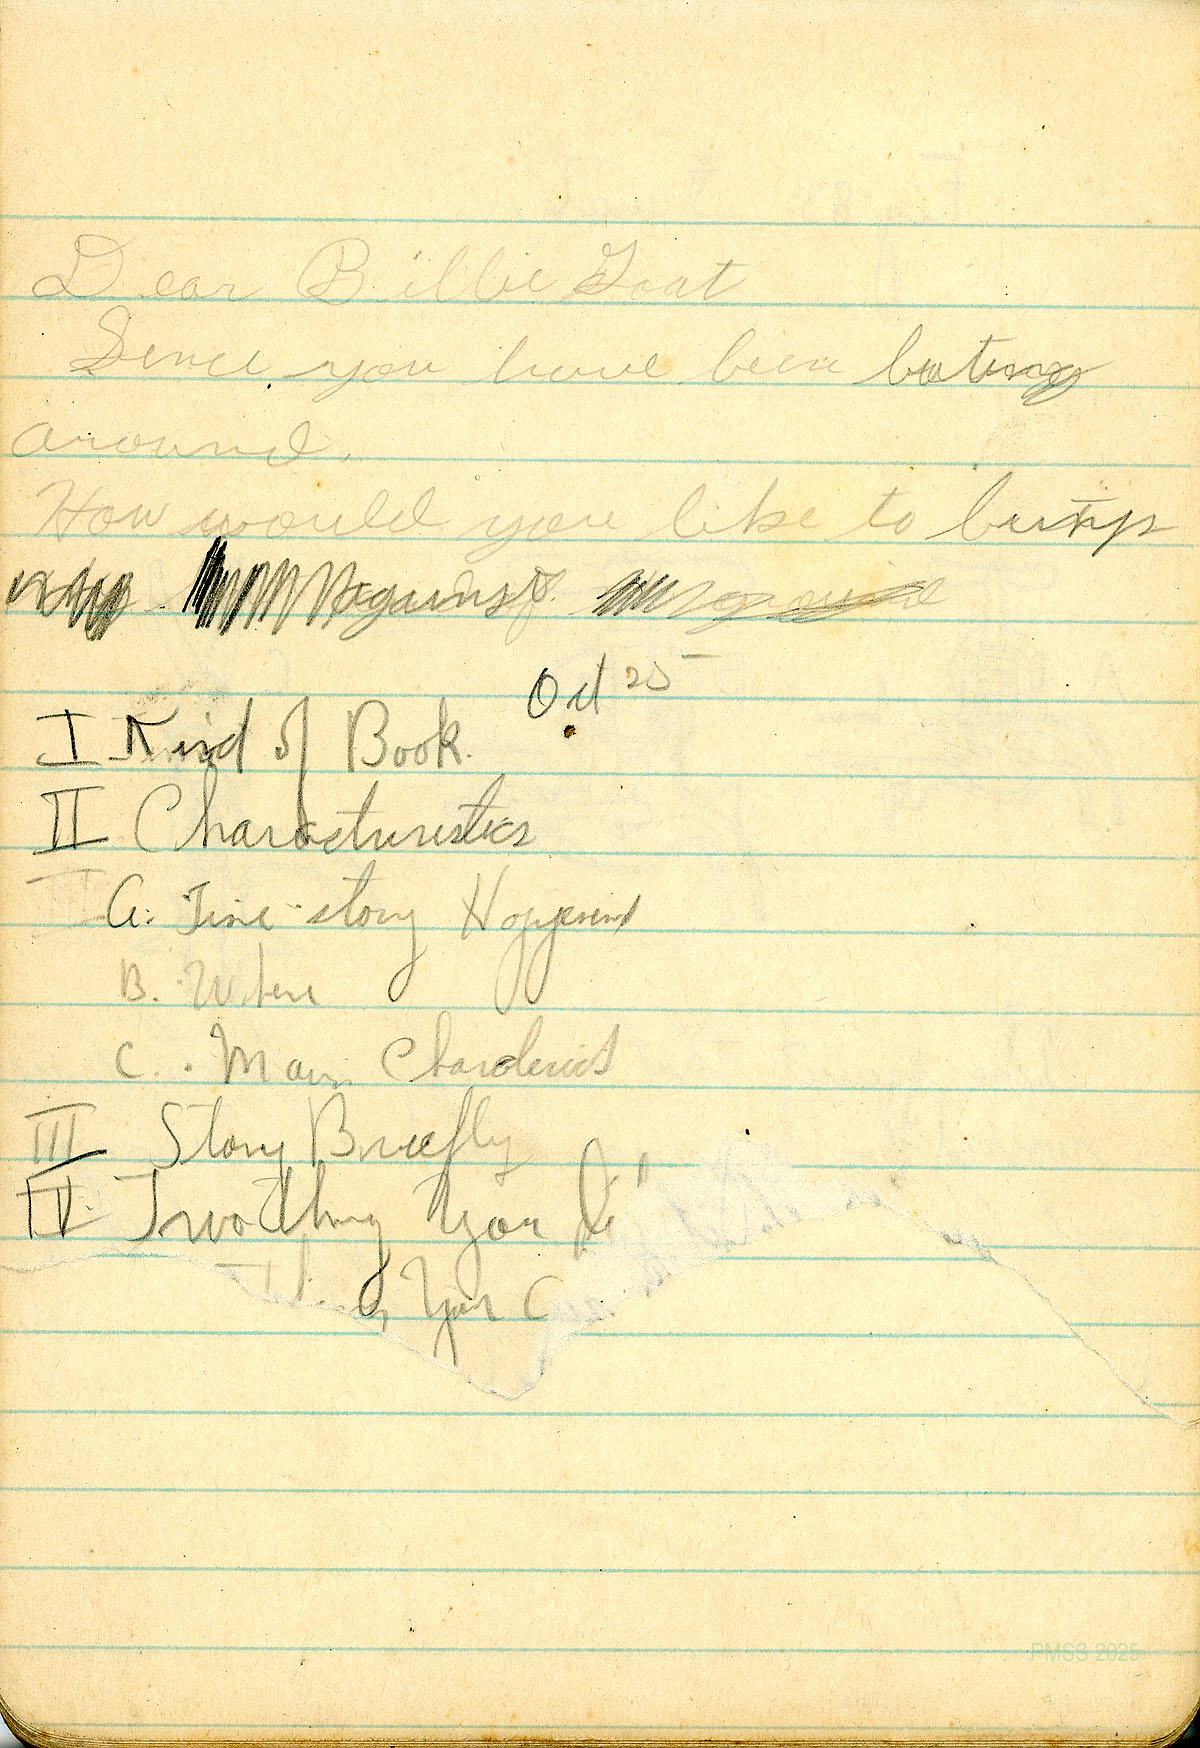 Dear Billie Goat
Sence you have been buting
around.
How would you like to
against
Oct 25
I Kind of Book.
II Characturistics
A. Time story Happened
B. Where
C. Main
III Story Briefly
IV. Two Thing You
You
PMSS 2025